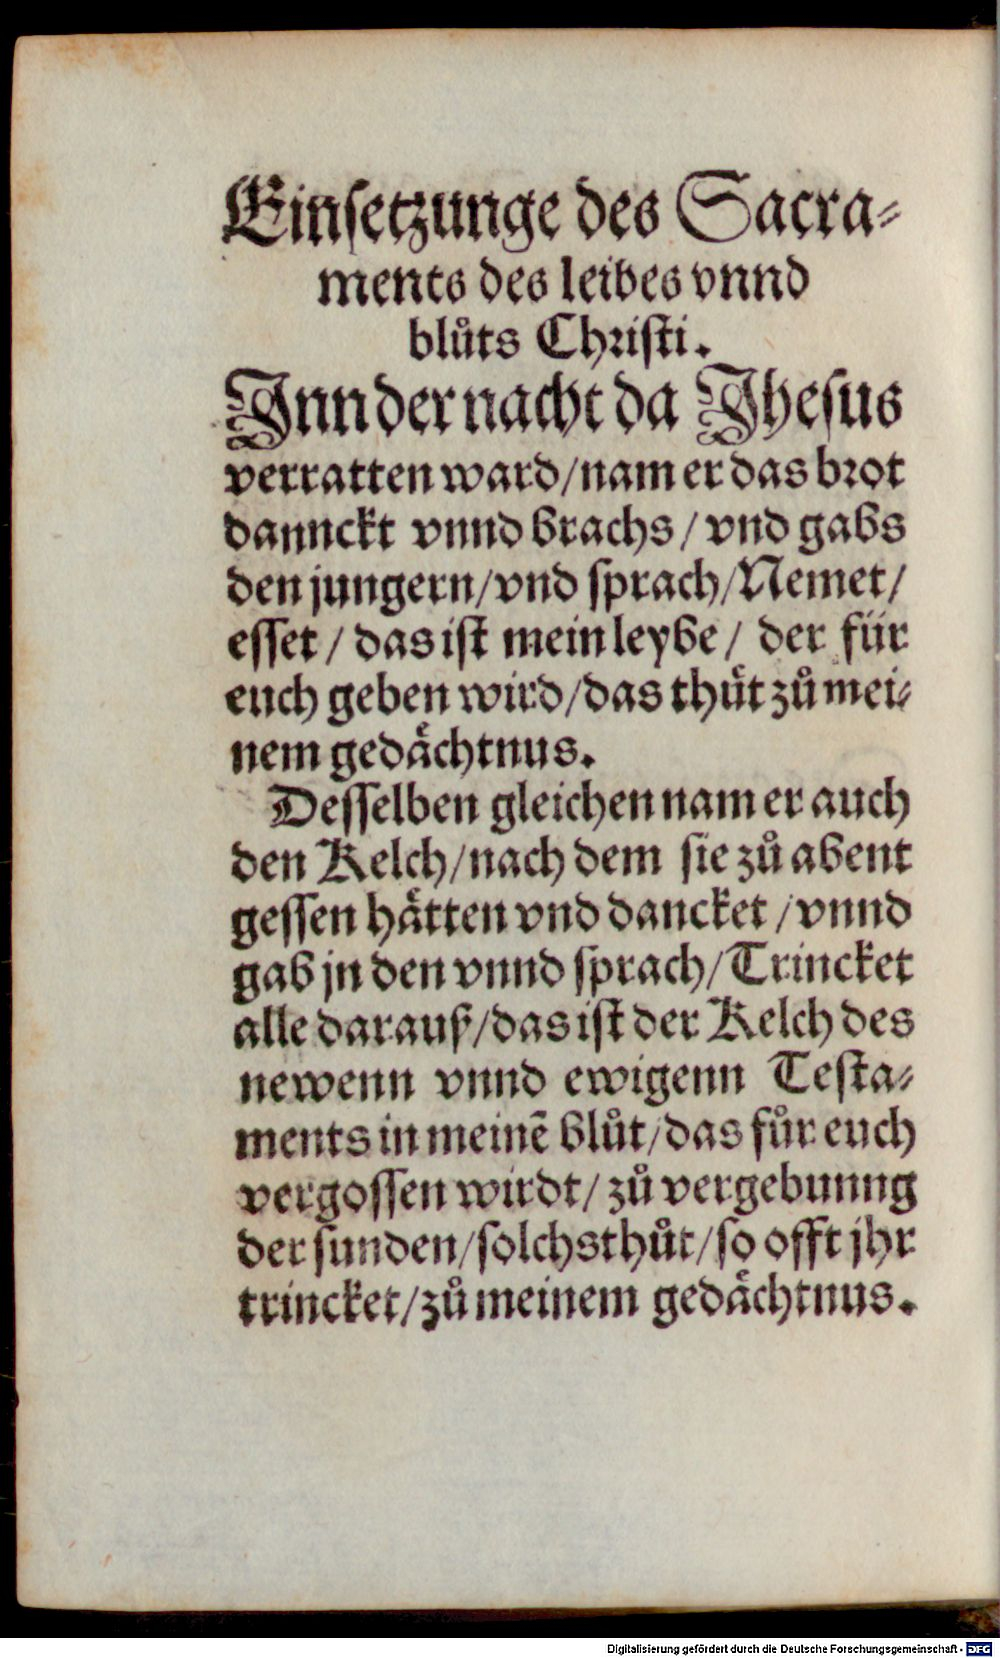 Einsetzunge des Sacra⸗
ments des leibes vnnd
blůts Christi.
Inn der nacht da Jhesus
verratten ward/nam er das brot
dannckt vnnd brachs/ vnd gabs
den jungern/vnd sprach/Nemet/
esset/ das ist mein leybe/ der für
euch geben wird/das thůt zů mei⸗
nem gedaͤchtnus.
Desselben gleichen nam er auch
den Kelch/nach dem sie zů abent
gessen haͤtten vnd dancket /vnnd
gab jn den vnnd sprach/Trincket
alle darauß/das ist der Kelch des
newenn vnnd ewigenn Testa⸗
ments in meinẽ blůt/das fůr euch
vergossen wirdt/ zů vergebunng
der sunden/solchs thůt/so offt jhr
trincket/zů meinem gedaͤchtnus.
Digitalisierung gefördert durch die Deutsche Forschungsgemeinschaft - DFG